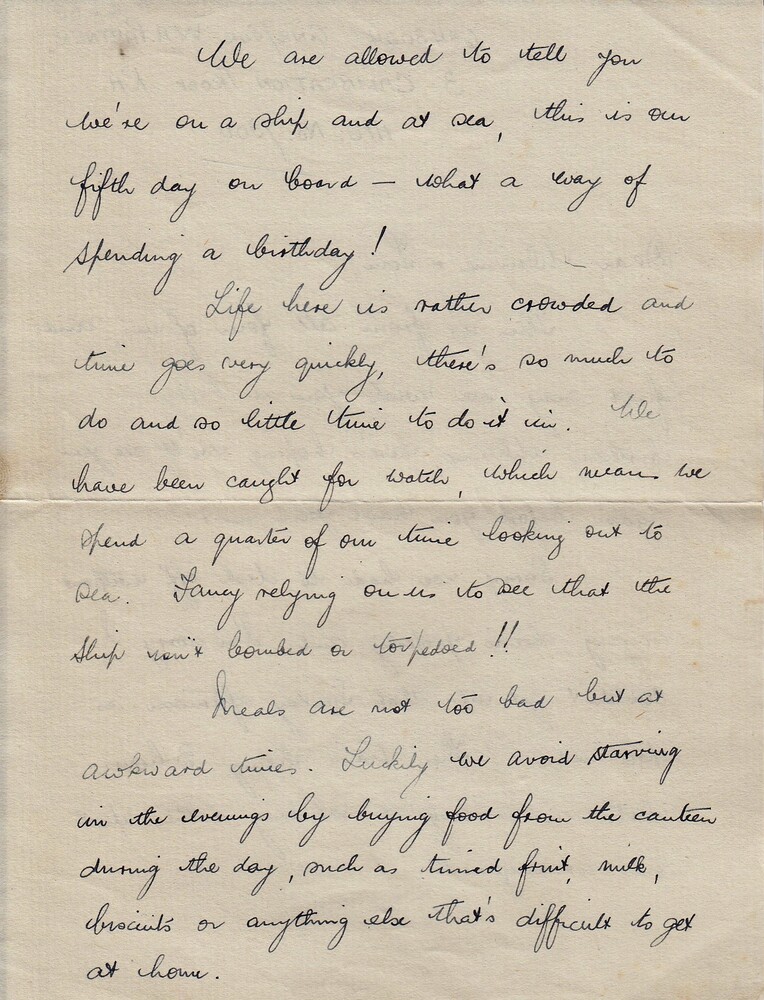 We are allowed to tell you
we're on a ship and at sea, this is our
fifth day on board — what a way of
spending a birthday!
Life here is rather crowded and
time goes very quickly, there's so much to
do and so little time to do it in. We
have been caught for watch, which means we
spend a quarter of our time looking out to
sea. Fancy relying on us to see that the
ship isn't bombed or torpedoed!!
Meals are not too bad but at
awkward times. Luckily we avoid starving
in the evenings by buying food from the canteen
during the day, such as tinned fruit, milk,
biscuits or anything else that's difficult to get
at home.